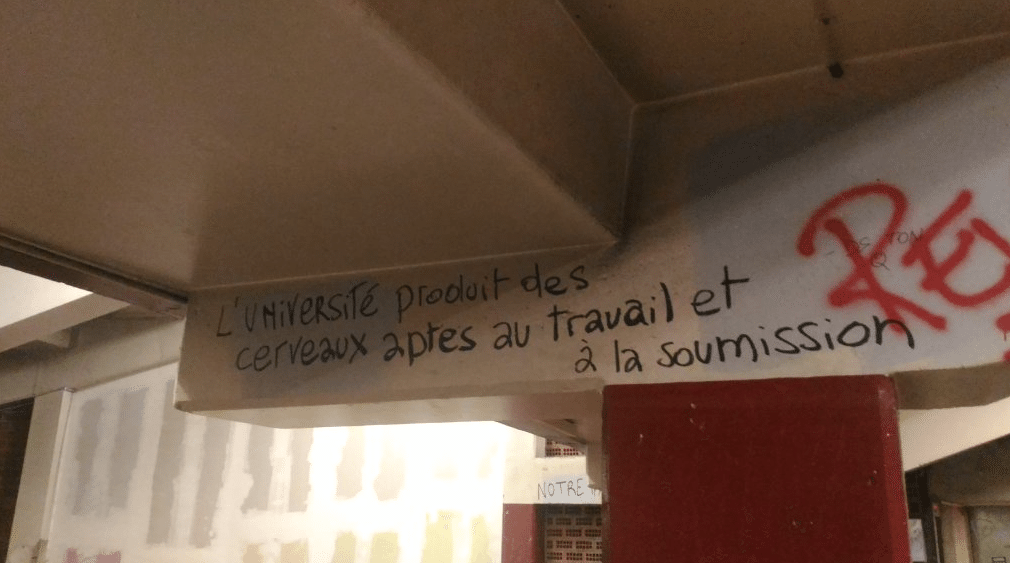 L'UNiVERSité produit des
cerveaux aptes au travail et
à la soumission
NOTRE